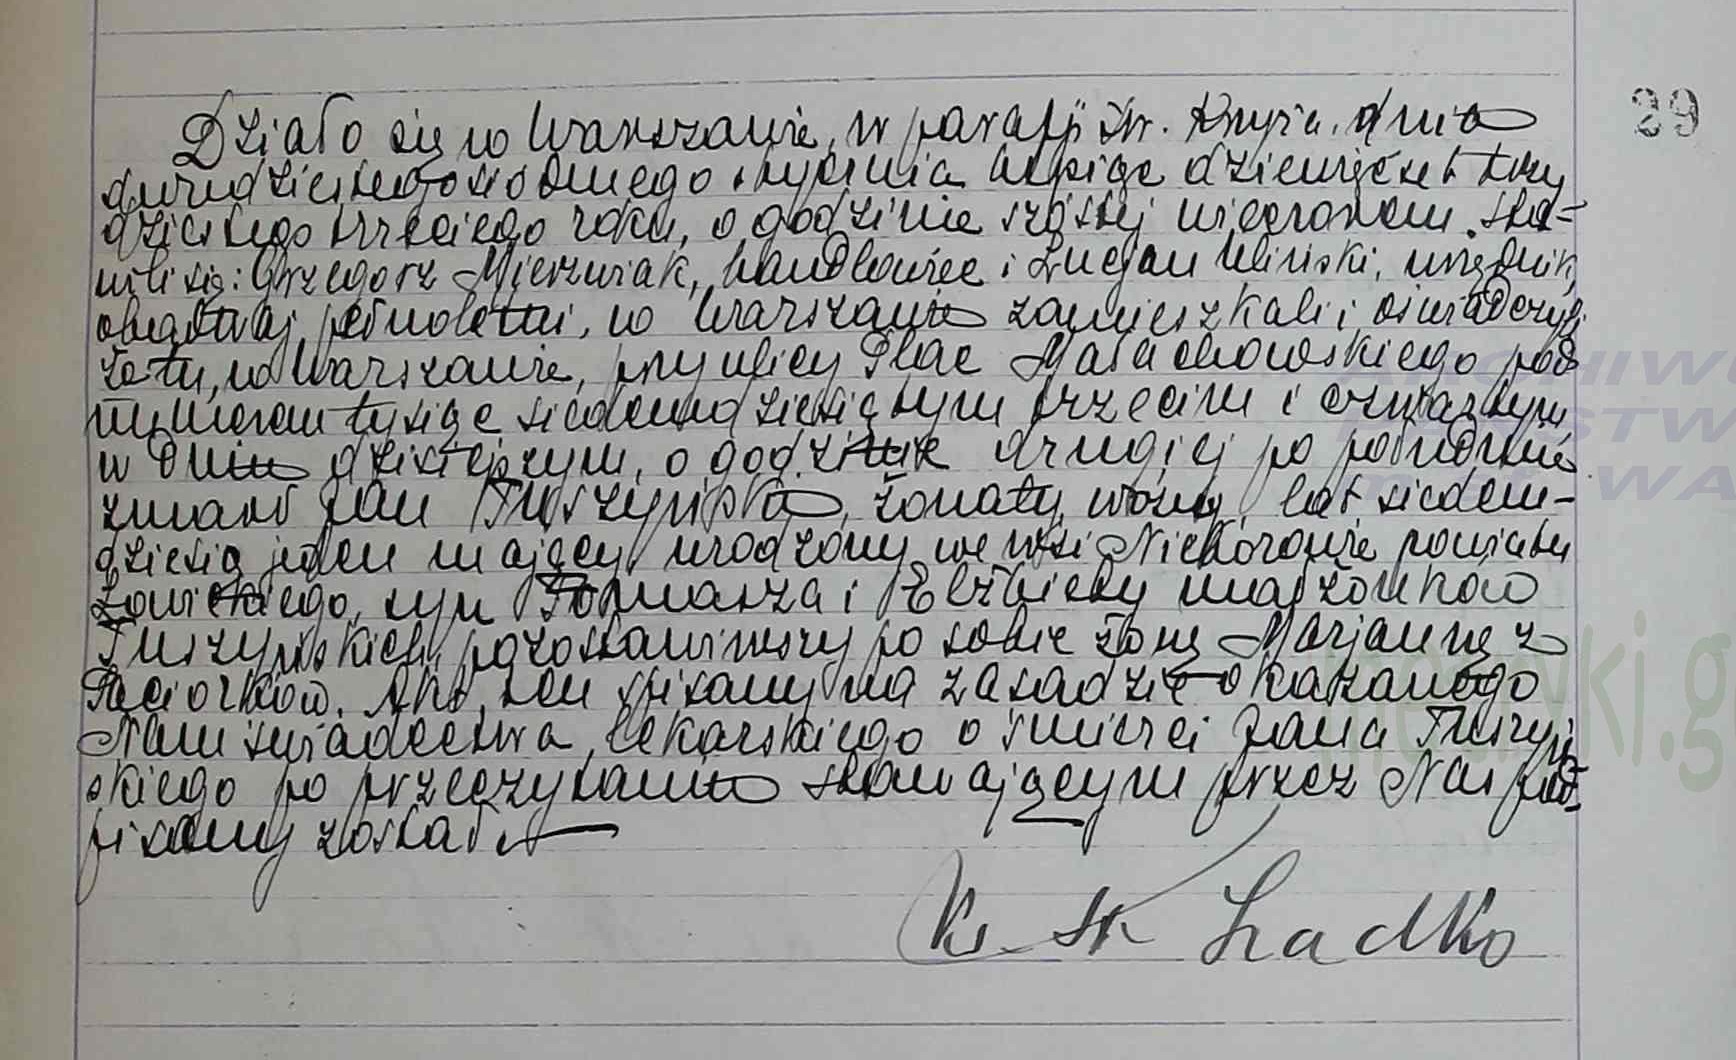 29
Działo się w Warszawie, w parafji Św. Krzyża, dnia
dwudziestego siódmego stycznia tysiąc dziewięćset trzy
dziestego trzeciego roku, o godzinie szóstej wieczorem. sta-
wili się: Grzegorz Mierzwiak, handlowiec i Lucjan Uliński, urzędnik,
obydwaj pełnoletni, w Warszawie zamieszkali i oświadczyli
że tu, w Warszawie, przy ulicy Plac Małachowskiego pod
numerem tysiąc siedemdziesiątym trzecim i czwartym,
w dniu dzisiejszym, o godzinie drugiej po południu
zmarł Jan Tuszyński, żonaty, woźny, lat siedem-
dziesiąt jeden mający urodzony we wsi Nieborowie powiatu
Łowickiego, syn Tomasza i Elżbiety małżonków
Tuszyńskich, pozostawiwszy po sobie żonę Marjannę z
Paciorków. Akt ten spisany na zasadzie okazanego
Nam świadectwa lekarskiego o śmierci Jana Tuszyń
skiego po przeczytaniu stawającym przez Nas pod-
pisany został
Ks. St Ładko